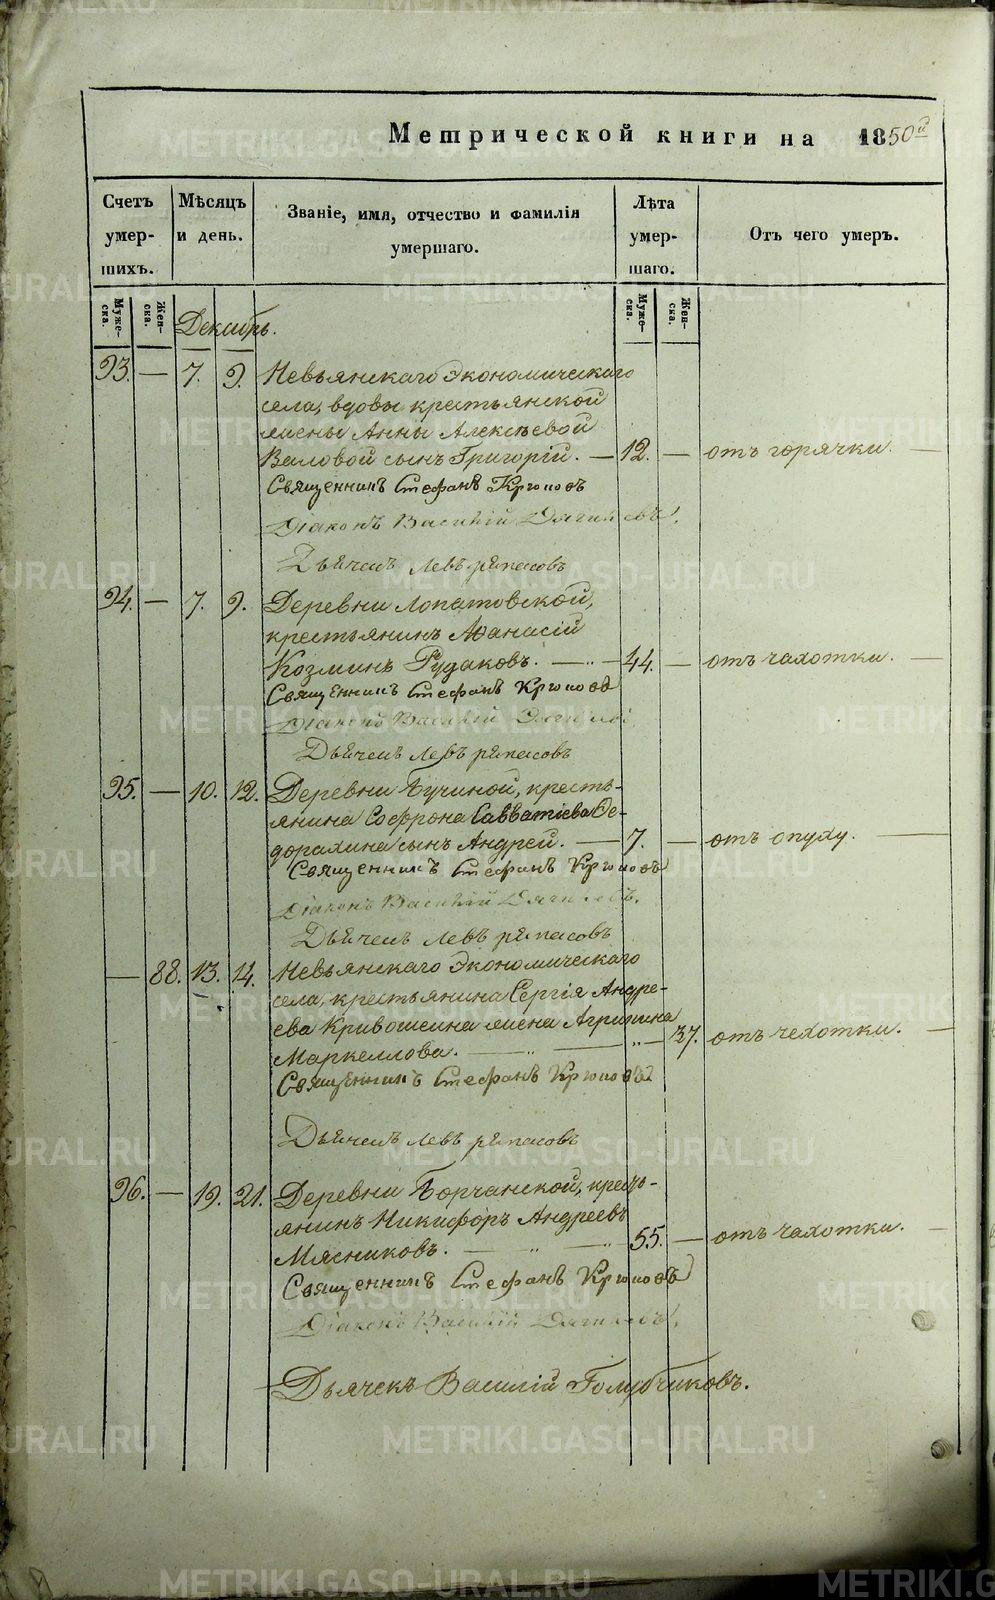 Метрической книги на 1850й
Счетъ умер- шихъ.
Мѣсяцъ и день.
Званіе, имя, отчество и фамилія умершаго.
Лѣта умер- шаго.
Отъ чего умеръ.
Муже- ска.
Жен- ска.
Муже- ска.
Жен- ска.
Декабрь.
93. — 7. 9. Невьянскаго Экономическаго
села, вдовы крестьянской
жены Анны Алексѣевой
Валовой сынъ Григорій. — 12. — отъ горячки. —
Священникъ Стефанъ Крюковъ
Діаконъ Василій Дягилевъ.
Дьячекъ Левъ
94. — 7. 9. Деревни Лопатовской,
крестьянинъ Аѳанасій
Козминъ Рудаковъ. — „ — 44. — отъ чахотки. —
Священникъ Стефанъ Крюковъ
Діаконъ Василій Дягилевъ
Дьячекъ Левъ
95. — 10. 12. Деревни Бучиной, кресть-
янина Софрона Савватіева Ѳе-
дорахина сынъ Андрей. — 7. — отъ опуху. —
Священникъ Стефанъ Крюковъ
Діаконъ Василій Дягилевъ.
Дьячекъ Левъ
— 88. 13. 14. Невьянскаго Экономическаго
села, крестьянина Сергія Андре-
ева Кривошеина жена Агрипина
Маркеллова. — „ — „ — 37. отъ чехотки. —
Священникъ Стефанъ Крюковъ
Дьячекъ Левъ
96. — 19. 21. Деревни Борчанской, кресть-
янинъ Никифоръ Андреевъ
Мясниковъ. — „ — „ 55. — отъ чахотки. —
Священникъ Стефанъ Крюковъ
Діаконъ Василій Дягилевъ.
Дьячекъ Василій Голубчиковъ.
METRIKI.GASO-URAL.RU